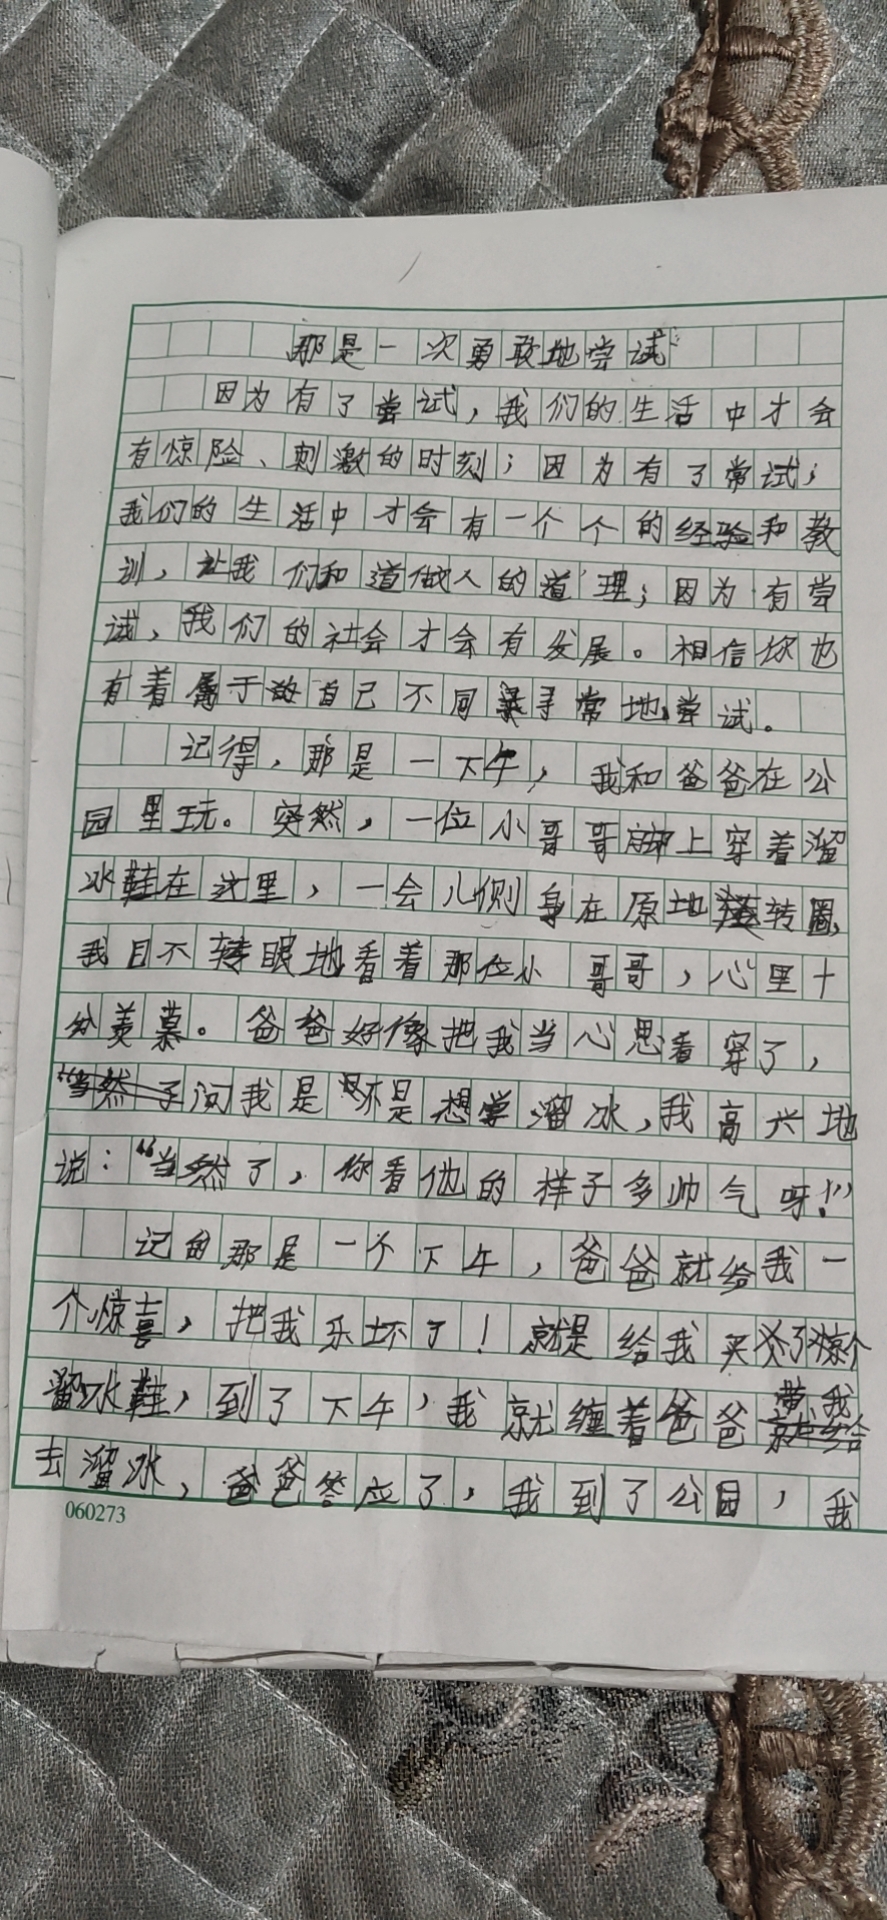 那是一次勇敢地尝试
因为有了尝试，我们的生活中才会
有惊险、刺激的时刻；因为有了常试；
我们的生活中才会有一个个的经验和教
训，让我们和道做人的道理；因为有尝
试，我们的社会才会有发展。相信你也
有着属于自己不同寻常地尝试。
记得，那是一下午，我和爸爸在公
园里玩。突然，一位小哥哥脚上穿着溜
冰鞋在这里，一会儿侧身在原地转圈，
我目不转眼地看着那位小哥哥，心里十
分羡慕。爸爸好像把我当心思看穿了，
问我是不是想学溜冰，我高兴地
说：“当然了，你看他的样子多帅气呀！”
记的那是一个下午，爸爸就给我一
个惊喜，把我乐坏了！就是给我买了
溜冰鞋，到了下午，我就缠着爸爸带我
去溜冰，爸爸答应了，我到了公园，我
060273